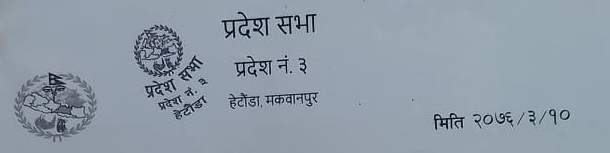 प्रदेश सभा
प्रदेश नं. ३
हेटौंडा, मकवानपुर
प्रदेश सभा
प्रदेश नं. ३
हेटौंडा
मिति २०७६/३/१०